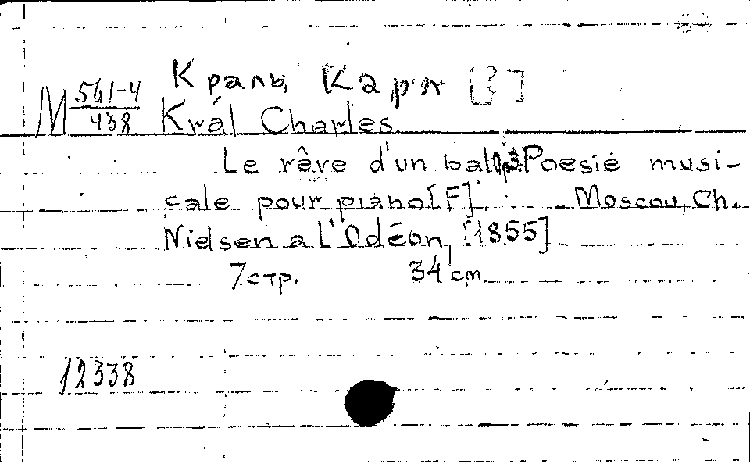 Краль, Карл [?]
М 541-4/438
Král Charles
Le rêve d'un bal. Poesie musi-
cale pour piano [F]. Moscou, Ch.
Nielsen a l'Odéon, [1855]
7 стр. 34 cm
12338